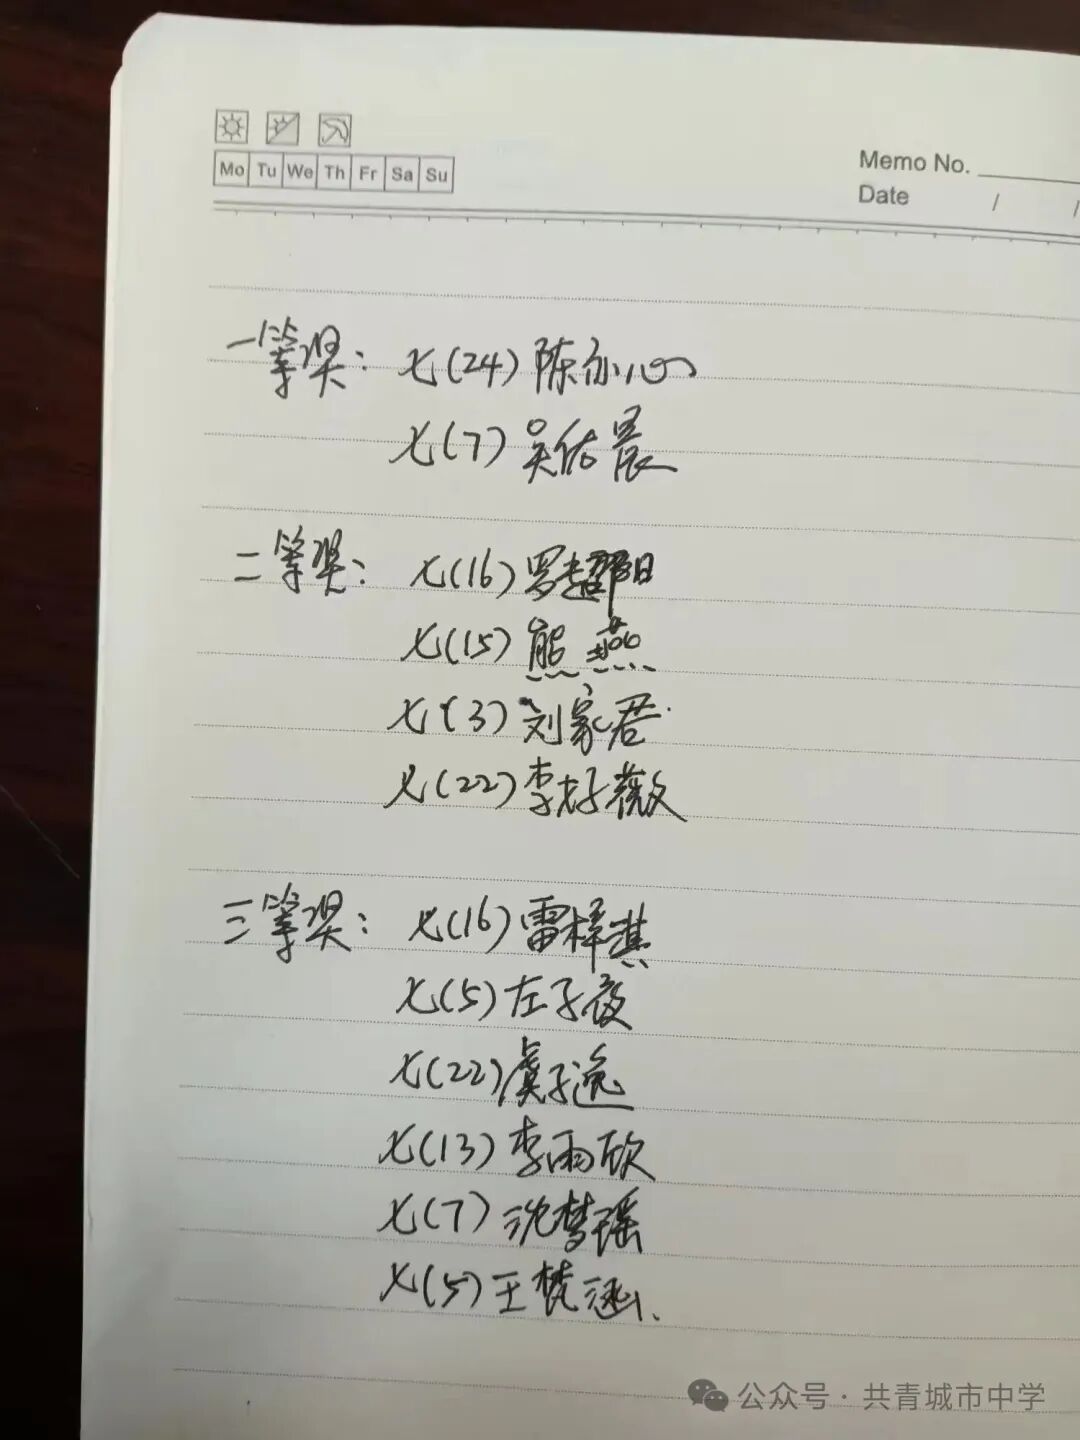 Mo Tu We Th Fr Sa Su
Memo No.
Date / /
一等奖：七(24) 陈亦心
七(7) 吴佑晨
二等奖：七(16) 罗
七(15) 熊燕
七(3) 刘家君
七(22) 李好薇
三等奖：七(16) 雷梓淇
七(5) 左子夜
七(22) 虞子逸
七(13) 李雨欣
七(7) 沈梦瑶
七(5) 王梵涵
公众号·共青城市中学